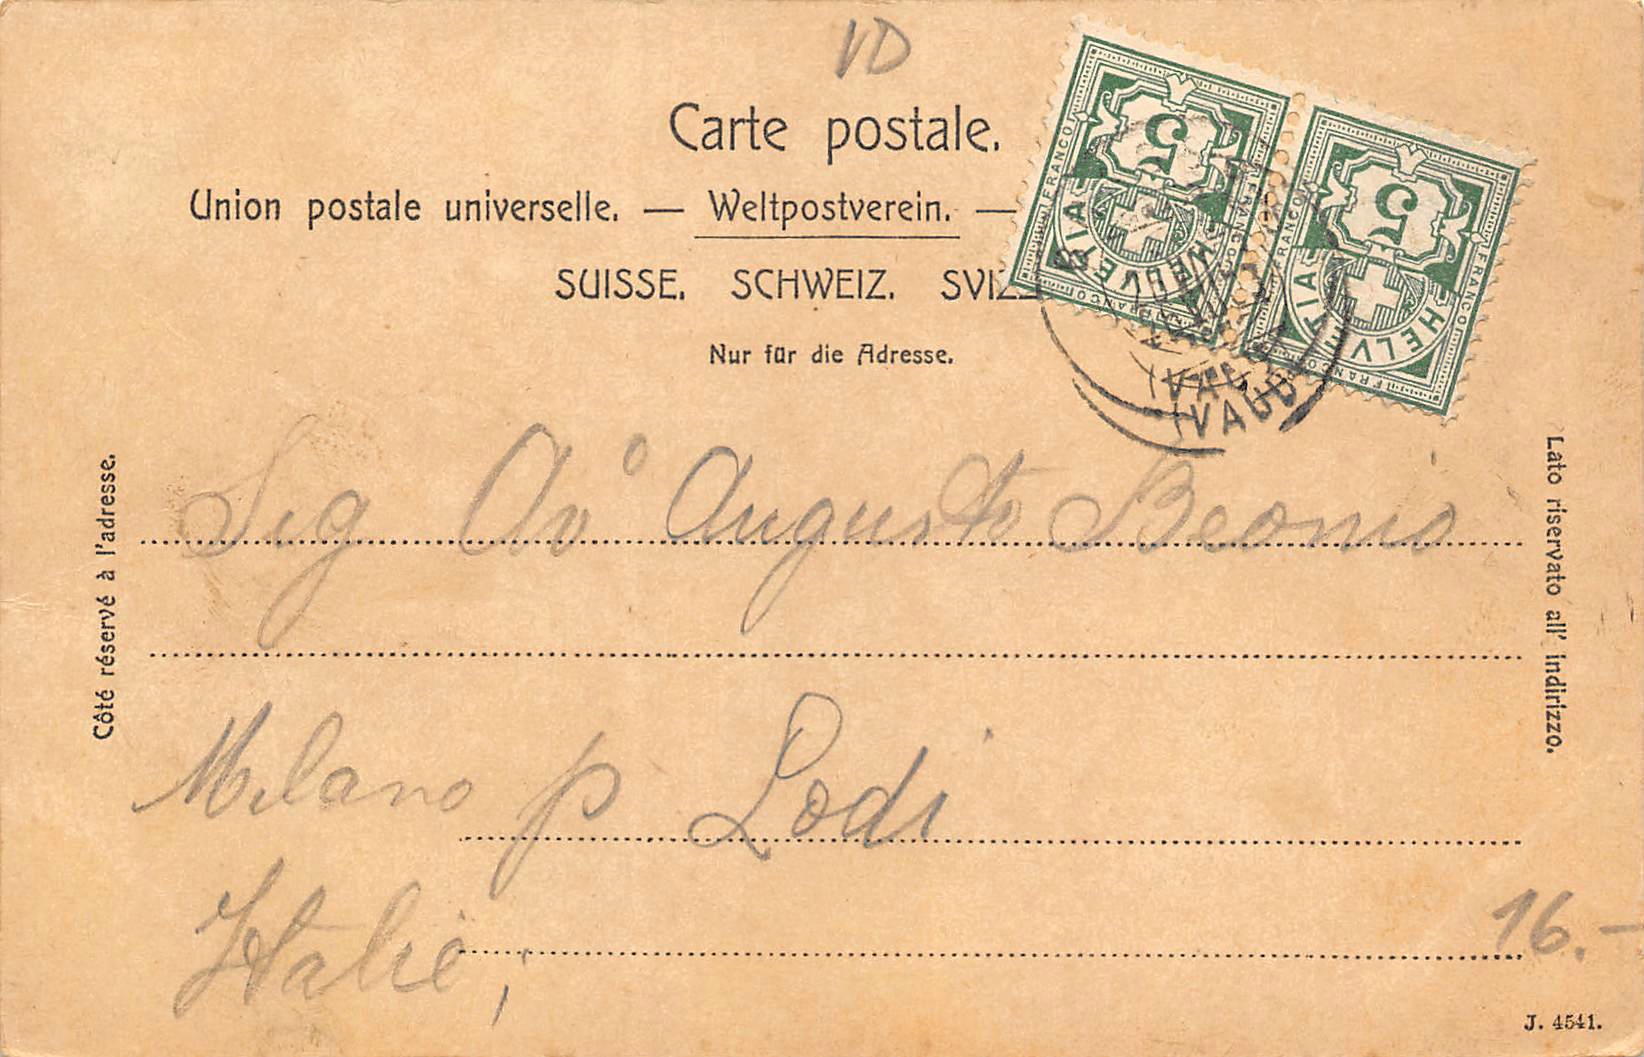 VD
Carte postale.
Union postale universelle. — Weltpostverein. —
SUISSE. SCHWEIZ. SVIZ
Nur für die Adresse.
Côté réservé à l'adresse.
Lato riservato all' indirizzo.
5
HELVETIA
FRANCO
5
HELVETIA
FRANCO
(VAUD
(VAUD)
Sig Avo Augusto Beonio
Milano p Lodi
Italie,
16.-
J. 4541.